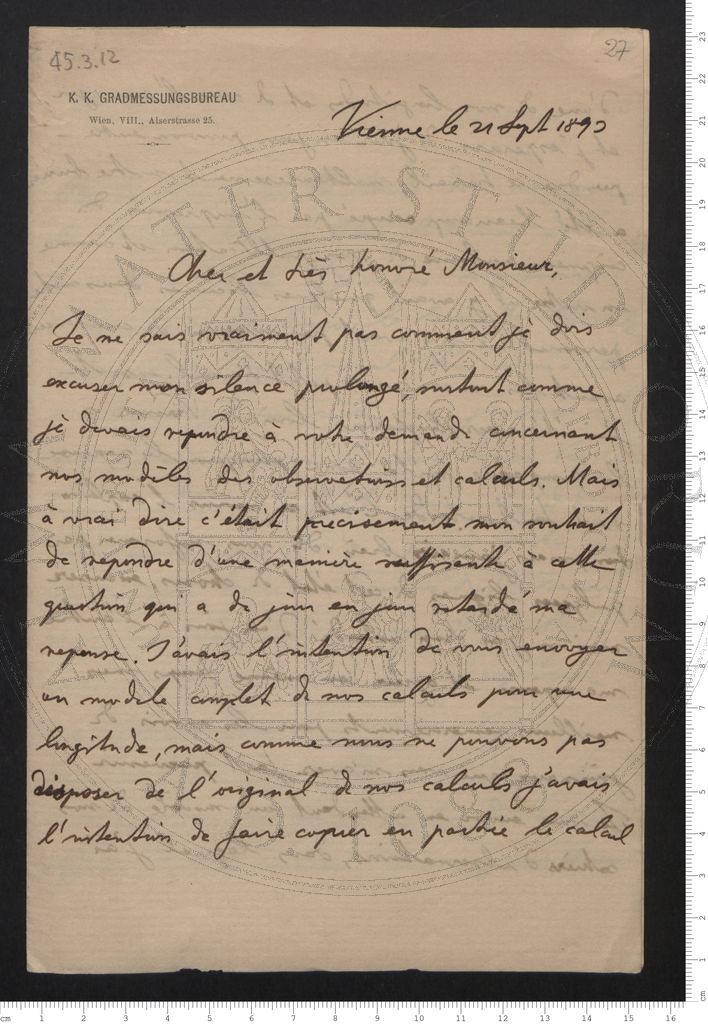 45.3.12
27
K. K. GRADMESSUNGSBUREAU
Wien, VIII., Alserstrasse 25.
Vienne le 21 Sept 1892
Cher et très honoré Monsieur,
Je ne sais vraiment pas comment je dois
excuser mon silence prolongé, surtout comme
je devais repondre à votre demande concernant
nos modèles des observations et calculs. Mais
à vrai dire c'était précisement mon souhait
de repondre d'une manière suffisante à cette
question qui a de jour en jour retardé ma
reponse. J'avais l'intention de vous envoyer
un modele complet de nos calculs pour une
longitude, mais comme nous ne pouvons pas
disposer de l'original de nos calculs j'avais
l'intention de faire copier en partie le calcul
ALMA MATER STUDIORUM